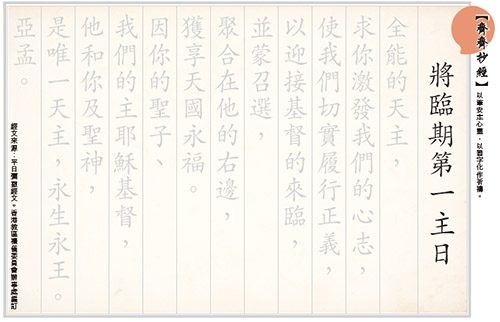 【齊齊抄經】
以筆安本心靈，以習字化作祈禱。
將臨期第一主日
全能的天主，
求你激發我們的心志，
使我們切實履行正義，
以迎接基督的來臨，
並蒙召選，
聚合在他的右邊，
獲享天國永福。
因你的聖子、
我們的主耶穌基督，
他和你及聖神，
是唯一天主，永生永王。
亞孟。
經文來源：平日彌撒經文。香港教區禮儀委員會辦事處編訂